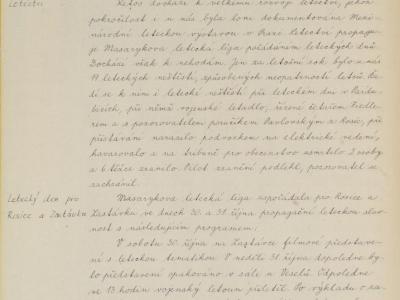 Letectví
Letos dochází k velkému rozvoji letectví, jehož
pokročilost i u nás byla loni dokumentována Mezi-
národní leteckou výstavou v Praze. Letectví propagu-
je Masarykova letecká liga pořádáním leteckých dnů.
Dochází však k nehodám. Jen za letošní rok bylo u nás
19 leteckých neštěstí, způsobených neopatrností letců.
dí se k nim i letecké neštěstí při leteckém dni v Pardu-
bicích, při němž vojenské letadlo, řízené četařem
a s pozorovatelem poručíkem Pavlovským a Rosic, při
přistávání narazilo podvozkem na elektrické vedení,
havarovalo a na tribuně pro obecenstvo usmrtilo 2 osoby
a 6 těžce zranilo. Pilot zranění podlehl, pozorovatel se
zachránil.
Letecký den pro
Rosice a Zastávku
Masarykova letecká liga uspořádala pro Rosice a
Zastávku ve dnech 30. a 31. října propagační leteckou slav-
nost s následujícím programem:
V sobotu 30. října na Zastávce filmové představe-
ní s leteckou tematikou. V neděli 31. října dopoledne by-
lo představení opakováno v sále u Veselů. Odpoledne
ve 13 hodin vojenský letoun přiletěl. Po výkladu o za-